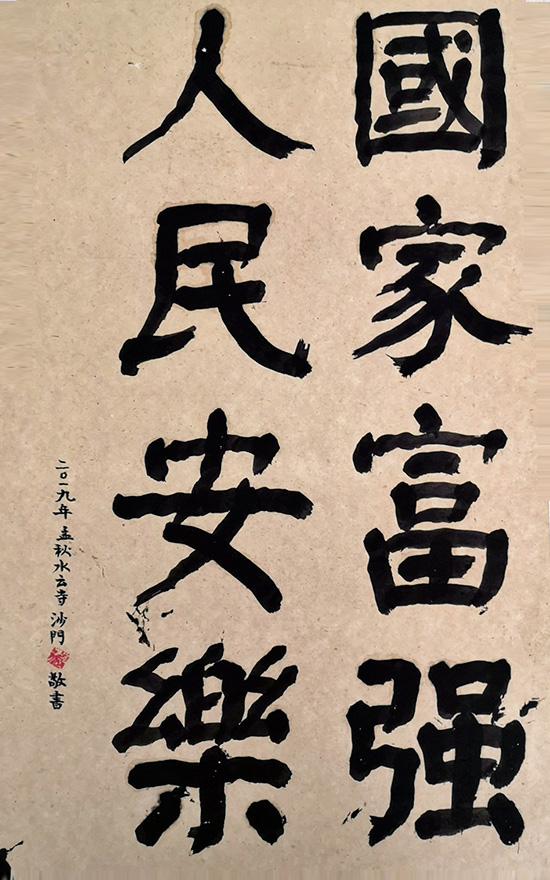 國家富强
人民安樂
二〇一九年孟秋水云寺沙門敬書